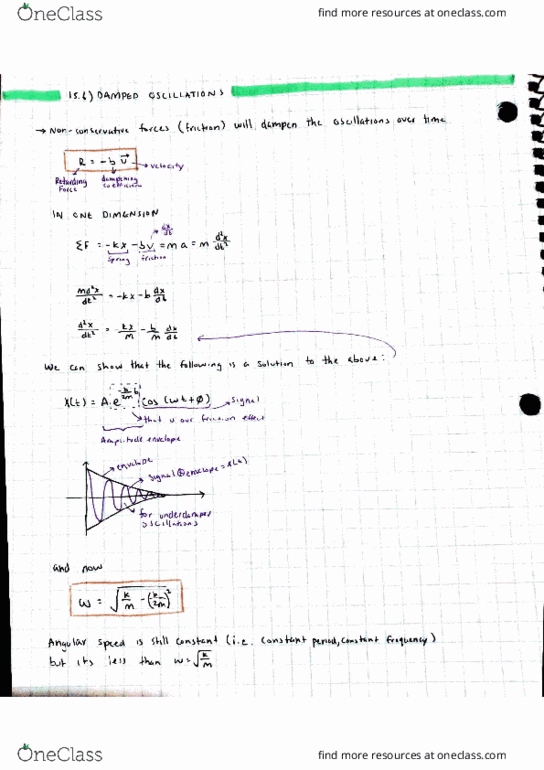 OneClass find more resources at oneclass.com
15.6) DAMPED OSCILLATIONS
→ Non-conservative forces (friction) will dampen the oscillations over time
R = -b v⃗ → velocity
Retarding Force dampening coefficient
IN ONE DIMENSION
dx/dt
ΣF = -kx - bv = ma = m d²x/dt²
spring friction
md²x/dt² = -kx - b dx/dt
d²x/dt² = -kx/m - b/m dx/dt
We can show that the following is a solution to the above:
x(t) = A e^(-b/2m t) cos (ωt + φ) → signal
that is our friction effect
Amplitude envelope
envelope
signal ⊕ envelope = x(t)
for underdamped oscillations
and now
ω = √(k/m - (b/2m)²)
Angular speed is still constant (i.e. constant period, constant frequency)
but its less than ω = √(k/m)
OneClass find more resources at oneclass.com